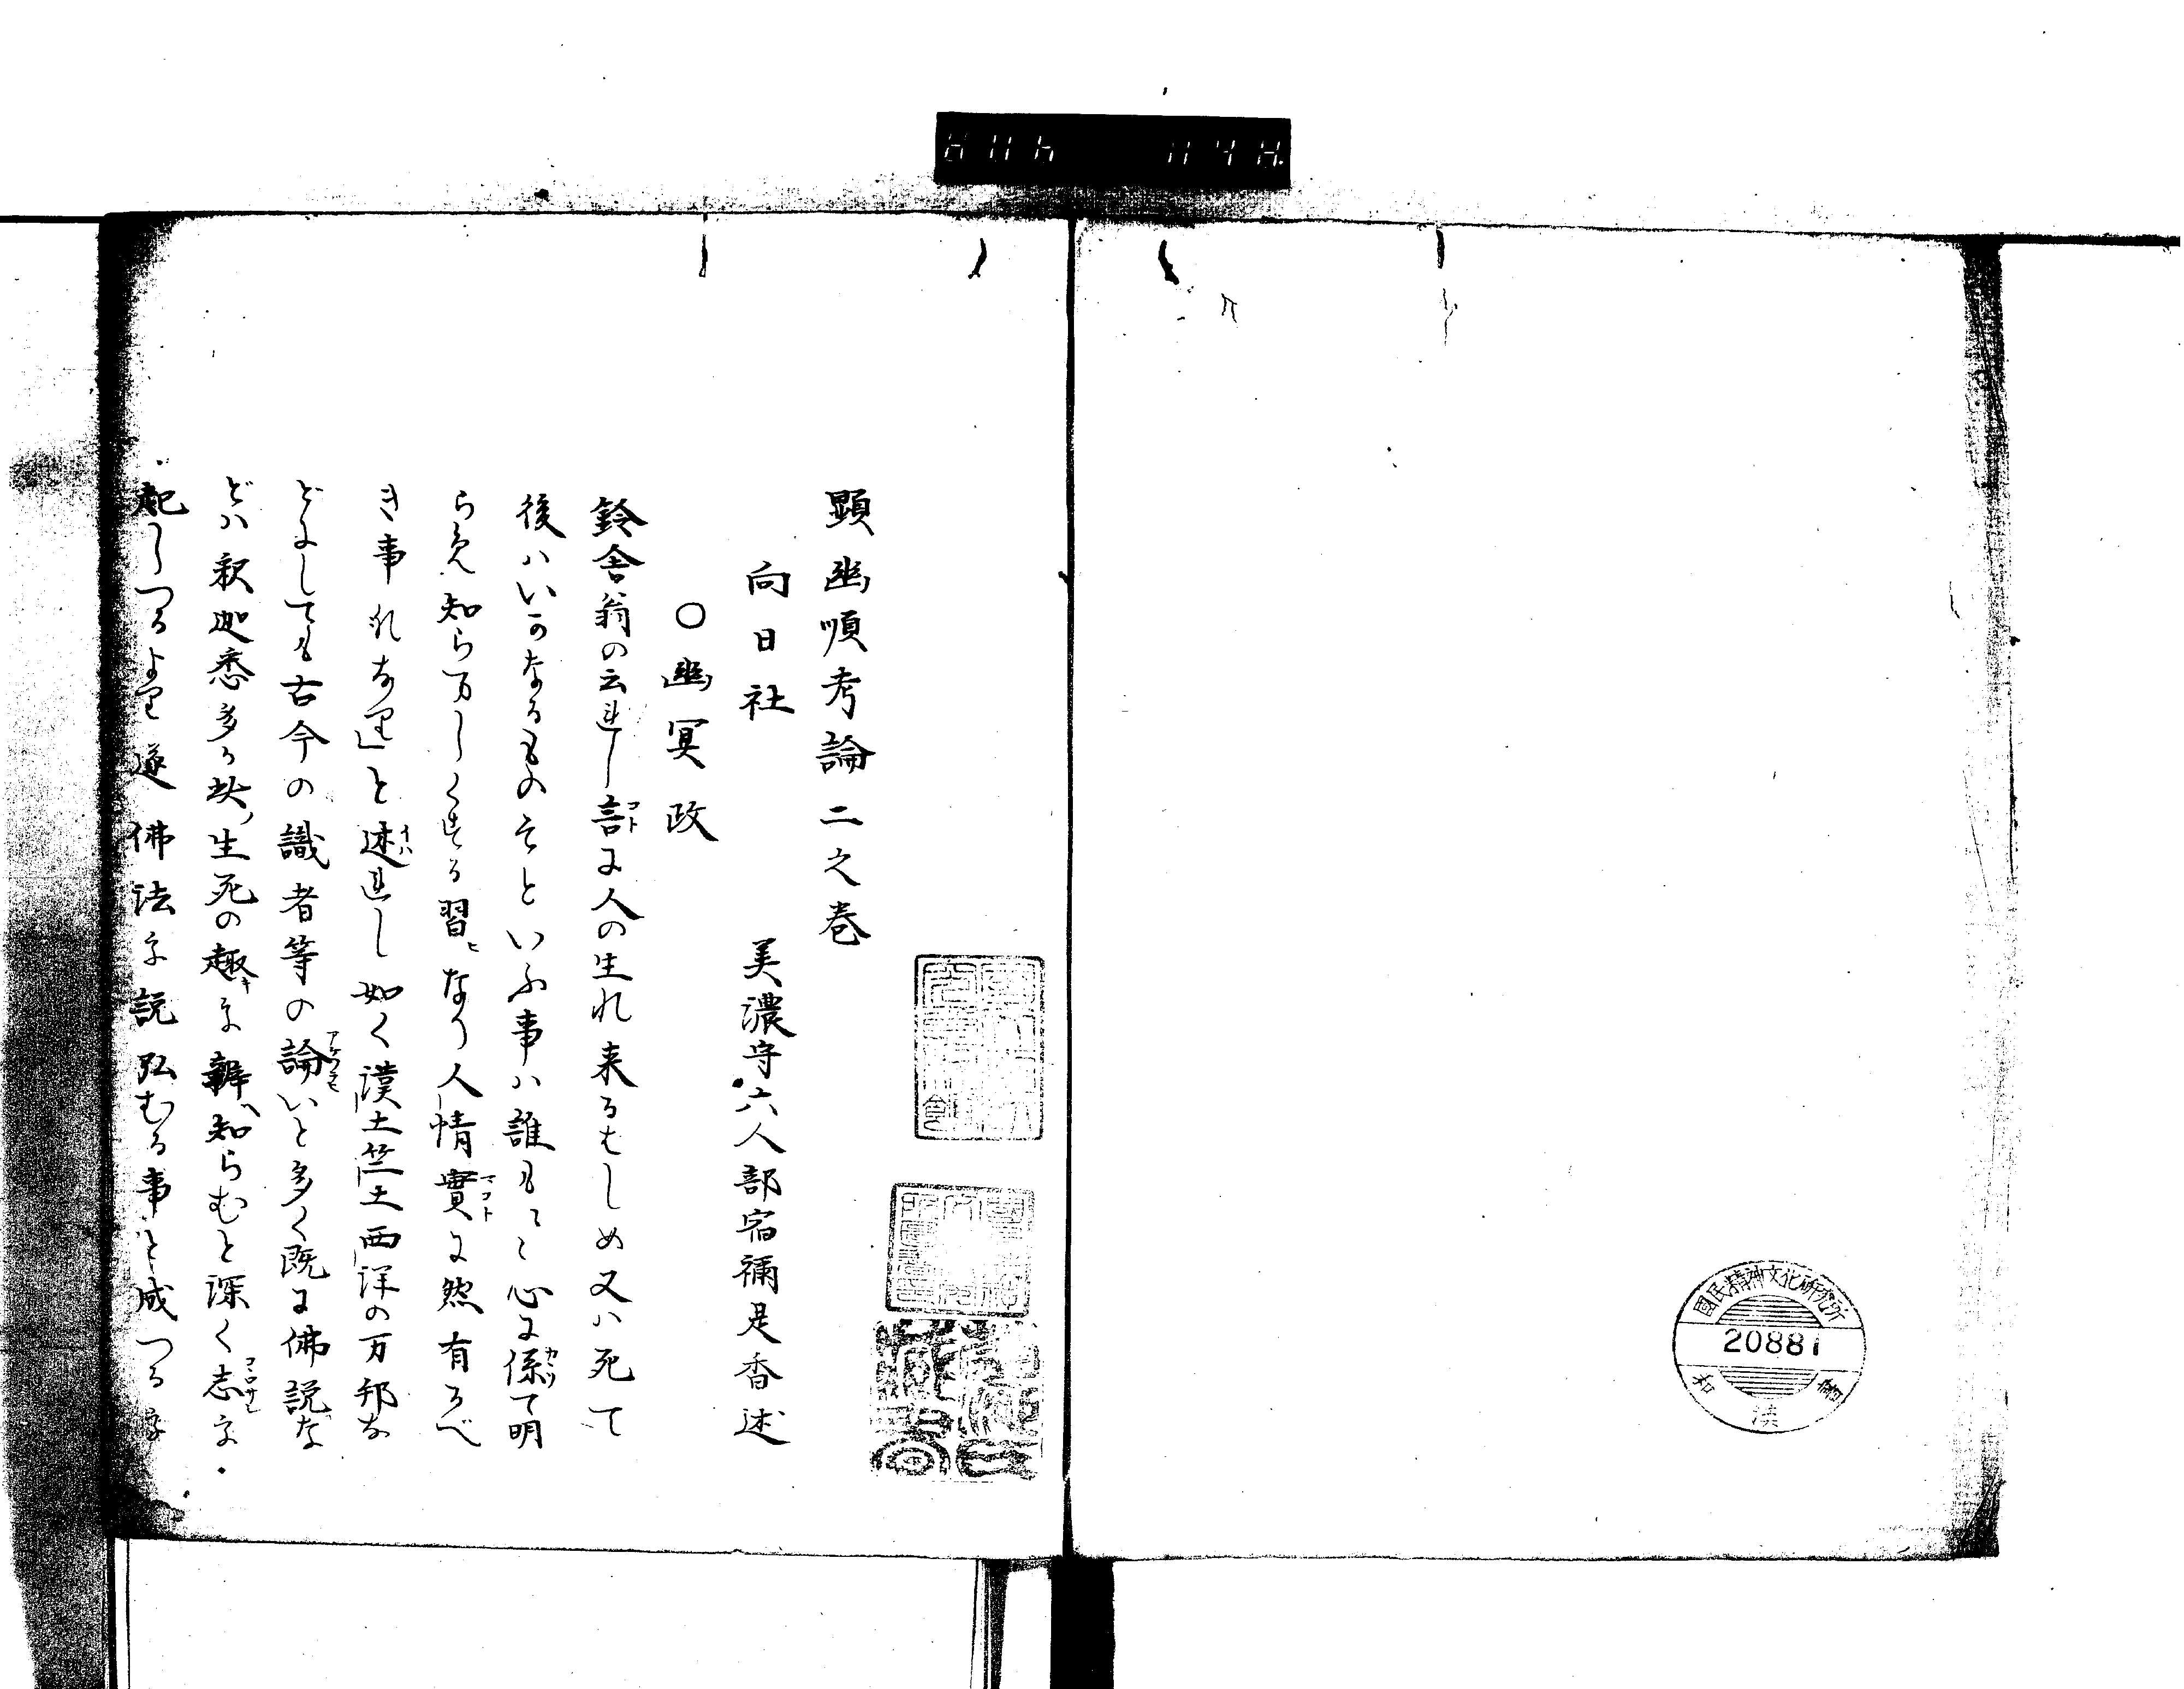 顕幽順考論二之巻
向日社　美濃守六人部宿禰是香述
〇幽冥政
鈴舎翁の云れし言コトに人の生れ来るはしめ又ハ死て
後ハいかなるものそといふ事ハ誰もミ心に係カケて明
らめ知らまほしくする習ヒなり人情實マコトに然有るべ
き事れなり」と述イハれし如く漢土竺土西洋の万邦な
どにしても古今の識者等の論アゲツラヒいと多く既に佛説な
どハ釈迦悉多が状ノ生死の趣キを辨ヘ知らむと深く志コヽロザシを
起しつるより遂佛法を説弘むる事と成つるを
國民精神文化研究所
20881